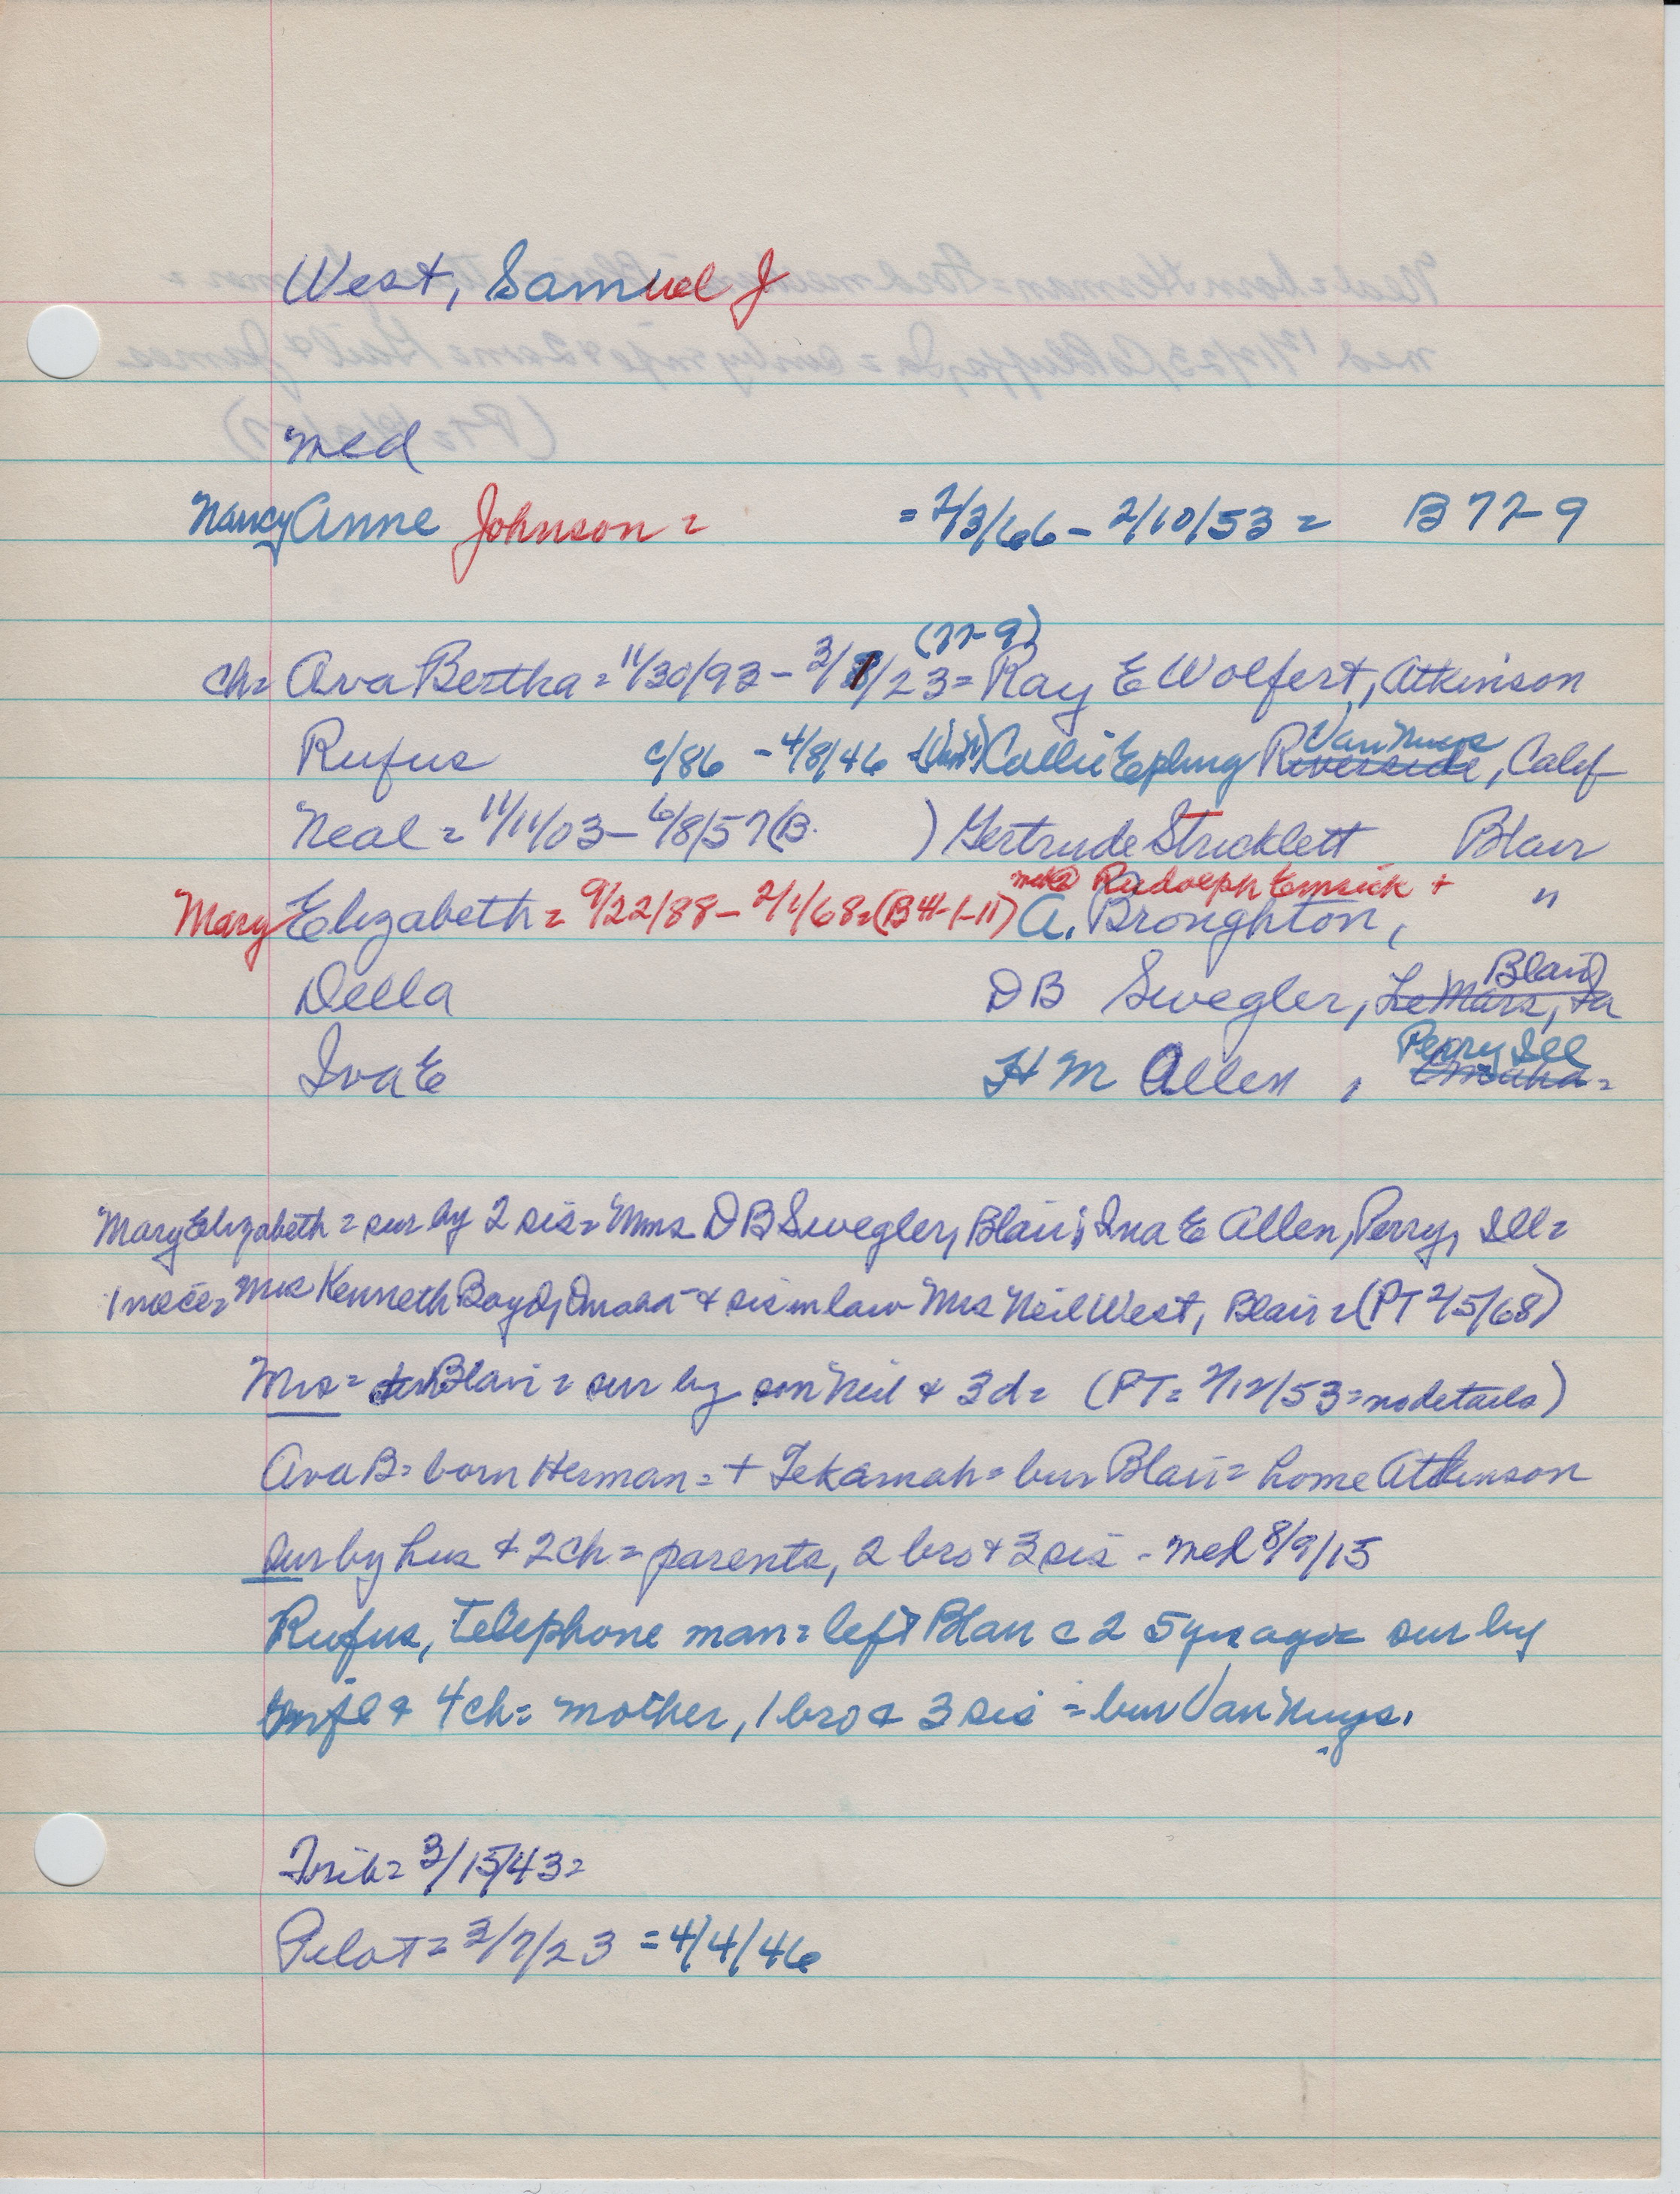 West, Samuel J
Med
Nancy Anne Johnson = = 2/3/66 - 2/10/53 = B 77-9
(77-9)
ch= Ava Bertha = 11/30/93 - 3/1/23 = Ray E Wolfert, Atkinson
Van Nuys
Rufus c/86 - 4/8/46 Callie Epling Riverside, Calif
Neal = 11/11/03 - 6/8/57 (B. ) Gertrude Stricklett Blair
Rudolph Emrick +
Mary Elizabeth = 9/22/88 - 2/1/68 = (B 41-1-11) A. Broughton, "
Blair
Della DB Swegler, Le Mars, Ia
Perry Ill
Iva E HM Allen , Omaha =
Mary Elizabeth = sur by 2 sis = Mms DB Swegler, Blair; Ina E Allen, Perry, Ill =
1 niece = Mrs Kenneth Boyd, Omaha - & sis in law - Mrs Neil West, Blair = (PT 2/5/68)
Mrs = Blair = sur by son Neil & 3 d = (PT = 2/12/53 = no details)
Ava B = born Herman = + Tekamah = bur Blair = home Atkinson
sur by hus & 2 ch = parents, 2 bros & 3 sis - med 8/9/15
Rufus, telephone man = left Blair c 25 yrs ago = sur by
wife & 4 ch = mother, 1 bro & 3 sis = bur Van Nuys.
Trib = 3/15/43 =
Pilot = 3/7/23 = 4/4/46